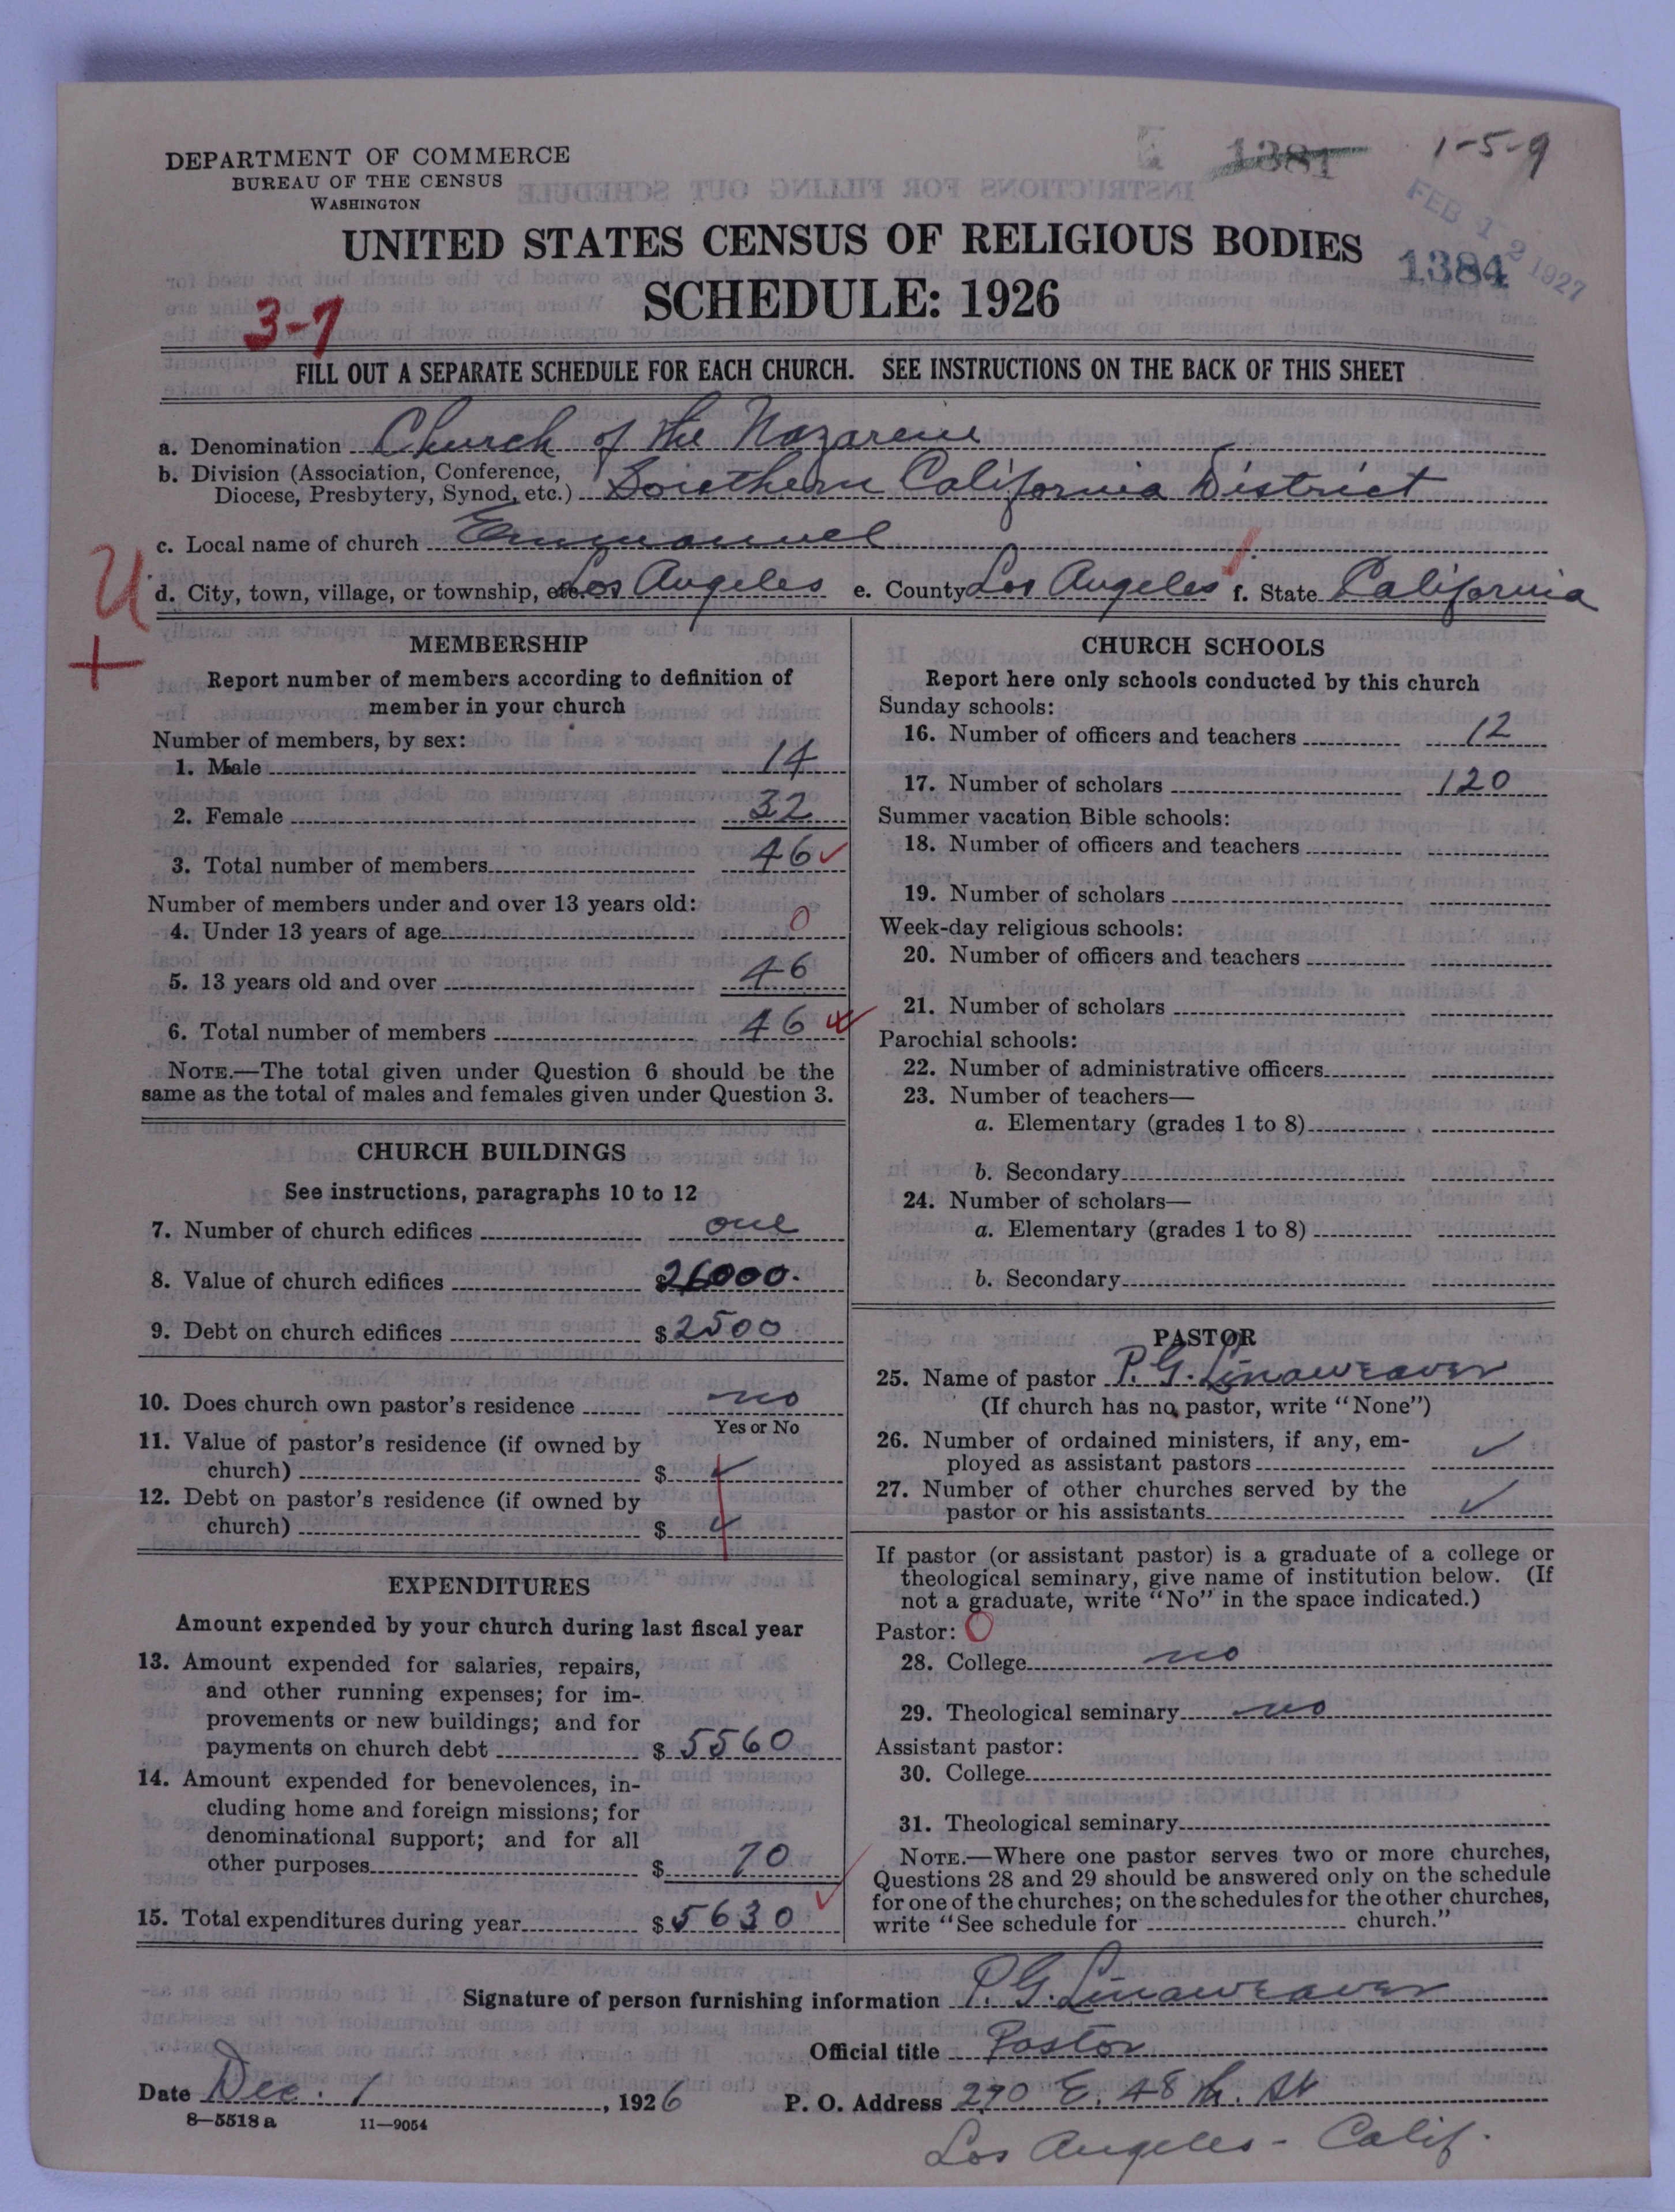 DEPARTMENT OF COMMERCE
BUREAU OF THE CENSUS
WASHINGTON
1381
1-5-9
FEB 12 1927
1384
UNITED STATES CENSUS OF RELIGIOUS BODIES
SCHEDULE: 1926
3-7
FILL OUT A SEPARATE SCHEDULE FOR EACH CHURCH. SEE INSTRUCTIONS ON THE BACK OF THIS SHEET
a. Denomination Church of the Nazarene
b. Division (Association, Conference,
Diocese, Presbytery, Synod, etc.) Southern California District
c. Local name of church Emmanuel
d. City, town, village, or township, etc. Los Angeles e. County Los Angeles f. State California
U
+
MEMBERSHIP
Report number of members according to definition of
member in your church
Number of members, by sex:
1. Male 14
2. Female 32
3. Total number of members 46 ✓
Number of members under and over 13 years old:
4. Under 13 years of age 0
5. 13 years old and over 46
6. Total number of members 46
NOTE.—The total given under Question 6 should be the
same as the total of males and females given under Question 3.
CHURCH BUILDINGS
See instructions, paragraphs 10 to 12
7. Number of church edifices one
8. Value of church edifices $26000.
9. Debt on church edifices $2500
10. Does church own pastor's residence no
Yes or No
11. Value of pastor's residence (if owned by
church) $ ✓
12. Debt on pastor's residence (if owned by
church) $ ✓
EXPENDITURES
Amount expended by your church during last fiscal year
13. Amount expended for salaries, repairs,
and other running expenses; for im-
provements or new buildings; and for
payments on church debt $ 5560
14. Amount expended for benevolences, in-
cluding home and foreign missions; for
denominational support; and for all
other purposes $ 70
15. Total expenditures during year $ 5630 ✓
CHURCH SCHOOLS
Report here only schools conducted by this church
Sunday schools:
16. Number of officers and teachers 12
17. Number of scholars 120
Summer vacation Bible schools:
18. Number of officers and teachers
19. Number of scholars
Week-day religious schools:
20. Number of officers and teachers
21. Number of scholars
Parochial schools:
22. Number of administrative officers
23. Number of teachers—
a. Elementary (grades 1 to 8)
b. Secondary
24. Number of scholars—
a. Elementary (grades 1 to 8)
b. Secondary
PASTOR
25. Name of pastor P. G. Linaweaver
(If church has no pastor, write "None")
26. Number of ordained ministers, if any, em-
ployed as assistant pastors ✓
27. Number of other churches served by the
pastor or his assistants ✓
If pastor (or assistant pastor) is a graduate of a college or
theological seminary, give name of institution below. (If
not a graduate, write "No" in the space indicated.)
Pastor: 0
28. College no
29. Theological seminary no
Assistant pastor:
30. College
31. Theological seminary
NOTE.—Where one pastor serves two or more churches,
Questions 28 and 29 should be answered only on the schedule
for one of the churches; on the schedules for the other churches,
write "See schedule for church."
Signature of person furnishing information P. G. Linaweaver
Official title Pastor
Date Dec. 1, 1926 P. O. Address 270 E. 48 th. St
8—5518 a 11—9054
Los Angeles - Calif.